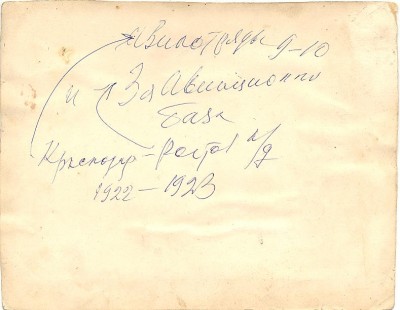 Авиаотряды 9-10
и 3я Авиационн
База
Краснодар - Рост н/Д
1922 - 1923